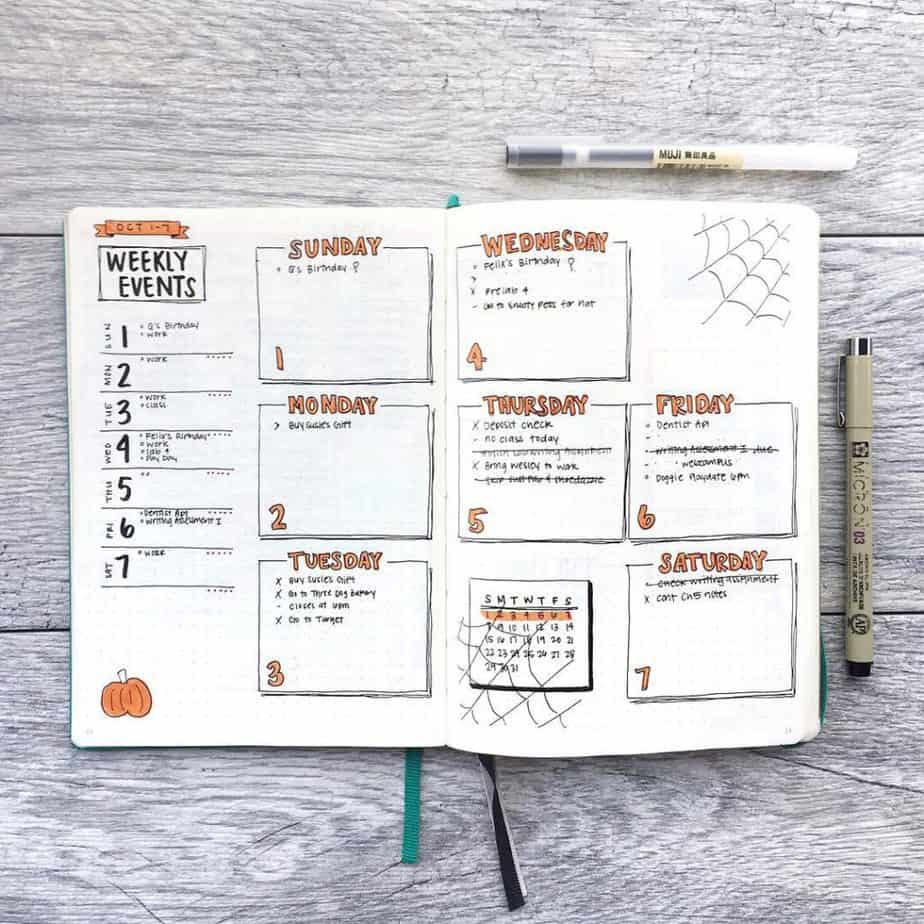 OCT 1-7
WEEKLY
EVENTS
SUN 1
Q's Birthday
work
MON 2
work
TUE 3
work
class
WED 4
Felix's Birthday
work
lab 4
Pay Day
THU 5
FRI 6
Dentist Apt
Writing Assessment I
SAT 7
work
SUNDAY
Q's Birthday
1
MONDAY
> Buy Susie's Gift
2
TUESDAY
x Buy Susie's Gift
x Go to Three Dog Bakery
- closes at 6pm
x Go to Target
3
WEDNESDAY
Felix's Birthday
x Prelab 4
4
THURSDAY
x Deposit check
- no class today
x Bring Wesley to work
5
FRIDAY
Dentist Apt
Writing Assessment I due
webcampus
Doggie Playdate 6pm
6
SATURDAY
check writing assignment
x cont Ch5 notes
7
S M T W T F S
1 2 3 4 5 6 7
8 9 10 11 12 13 14
15 16 17 18 19 20 21
22 23 24 25 26 27 28
29 30 31
MUJI 無印良品
MICRON 03